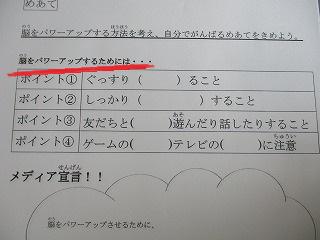 めあて
脳をパワーアップする方法を考え、自分でがんばるめあてをきめよう。
脳をパワーアップするためには・・・
ポイント① ぐっすり（　　　）ること
ポイント② しっかり（　　　　　）すること
ポイント③ 友だちと（　　　）遊んだり話したりすること
ポイント④ ゲームの（　　　）テレビの（　　　）に注意
メディア宣言！！
脳をパワーアップさせるために、